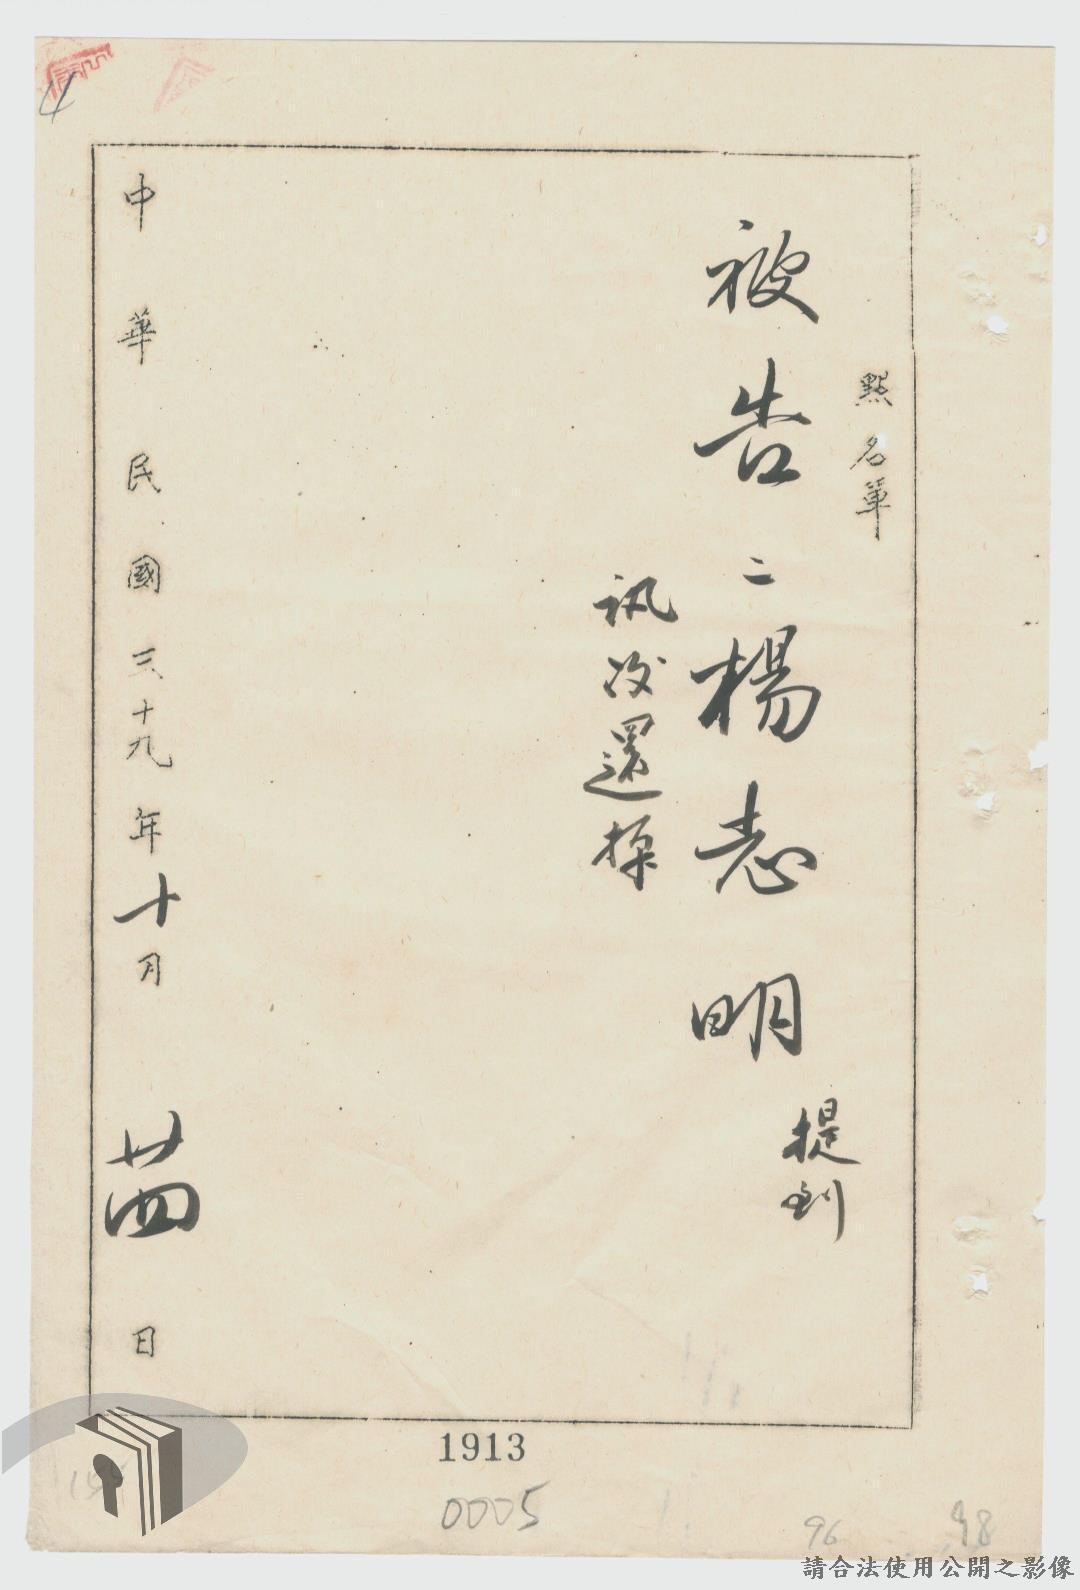 點名單
被告二楊志明 提到
訊後還押
中華民國三十九年十月廿四日
4
1913
0005
96
98
請合法使用公開之影像